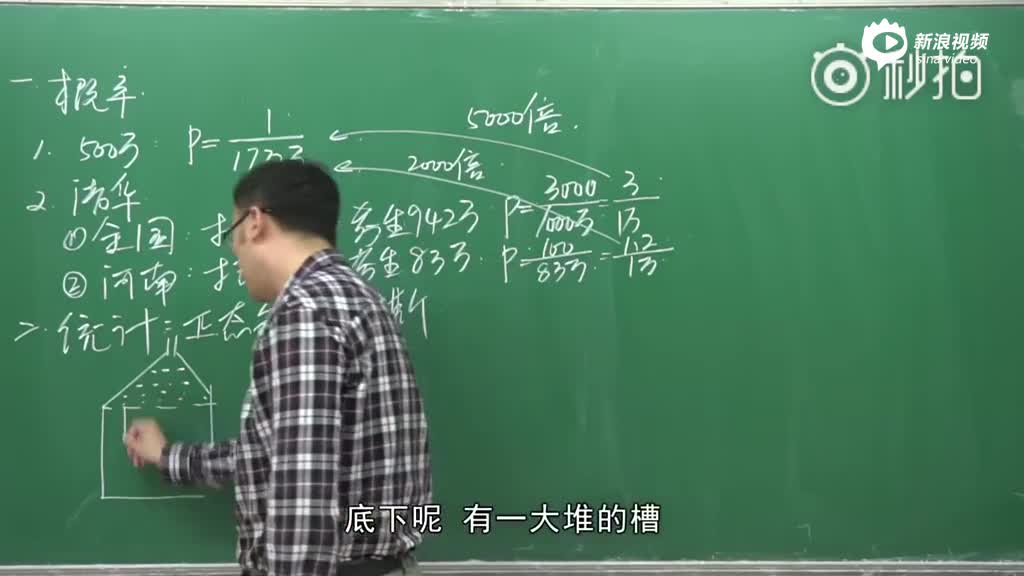 新浪视频
sina video
秒拍
一. 概率.
1. 500万: P=1/
5000倍.
2000倍.
2. 清华
①全国: 考生942万 P=3000/1000万=3/1万
②河南: 考生83万. P=100/83万=1.2/1万
二. 统计: 正态 斯
底下呢 有一大堆的槽